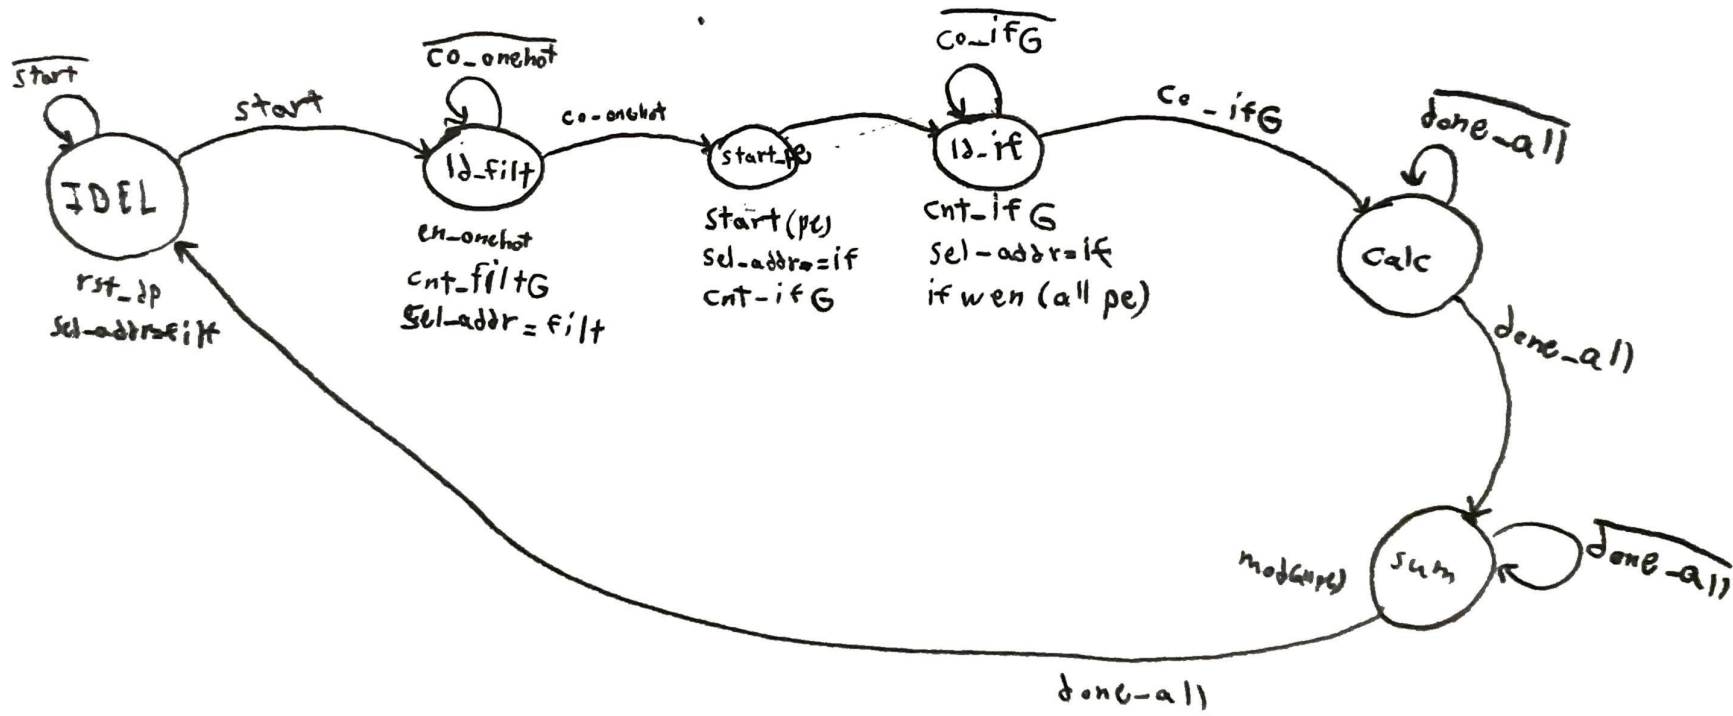 start
IDEL
rst_dp
sel-addr=filt
start
co_onehot
ld_filt
en_onehot
cnt_filtG
sel_addr = filt
co-onehot
start_pe
start(pe)
sel_addr=if
cnt-if G
co_ifG
ld_if
cnt_if G
sel-addr=if
if wen (all pe)
co_ifG
done_all
calc
done_all
sum
mod(all pe)
done_all
done_all